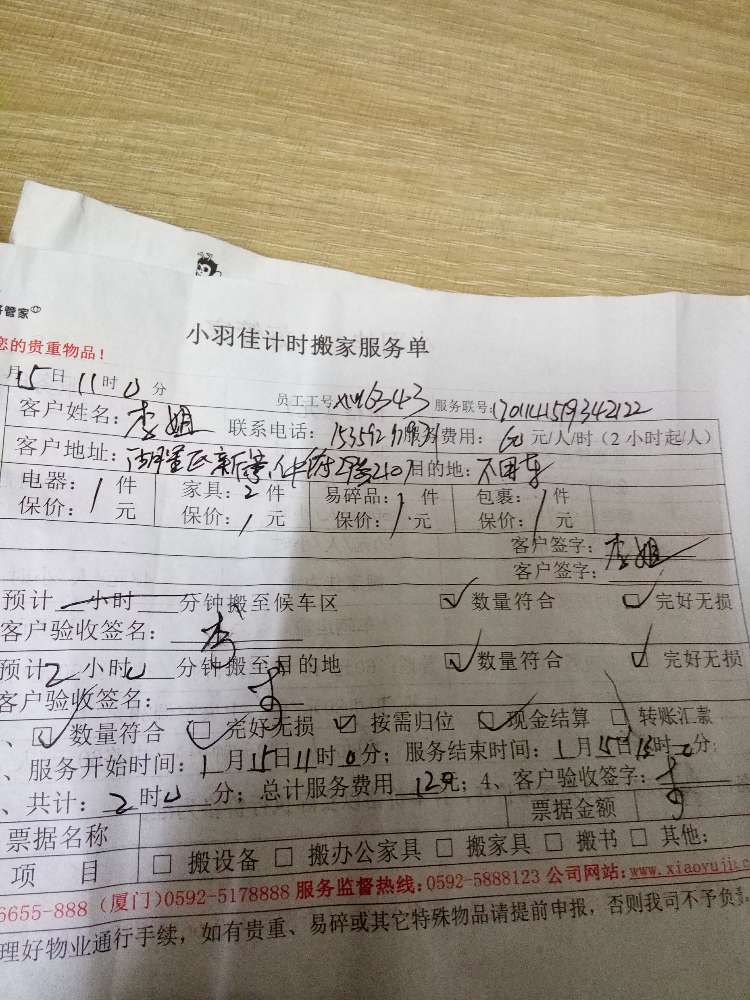 管家
小羽佳计时搬家服务单
您的贵重物品！
月15日11时0分 员工工号 6343 服务联号：
客户姓名：李姐 联系电话： 服务费用：60元/人/时（2小时起/人）
客户地址： 目的地：不用车
电器：1件 家具：2件 易碎品：1件 包裹：1件
保价：/元 保价：/元 保价：/元 保价：/元
客户签字：李姐
客户签字：
预计 小时 分钟搬至候车区 ☑数量符合 ☑完好无损
客户验收签名：李
预计2小时0分钟搬至目的地 ☑数量符合 ☑完好无损
客户验收签名：李
、☑数量符合 ☑完好无损 ☑按需归位 ☑现金结算 □转账汇款
、服务开始时间：1月15日11时0分；服务结束时间：1月15日13时0分；
、共计：2时0分；总计服务费用 ；4、客户验收签字：李
票据名称 票据金额
项目 □搬设备 □搬办公家具 □搬家具 □搬书 □其他：
6655-888（厦门）0592-5178888 服务监督热线：0592-5888123 公司网站：www.xiaoyuji
理好物业通行手续，如有贵重、易碎或其它特殊物品请提前申报，否则我司不予负责